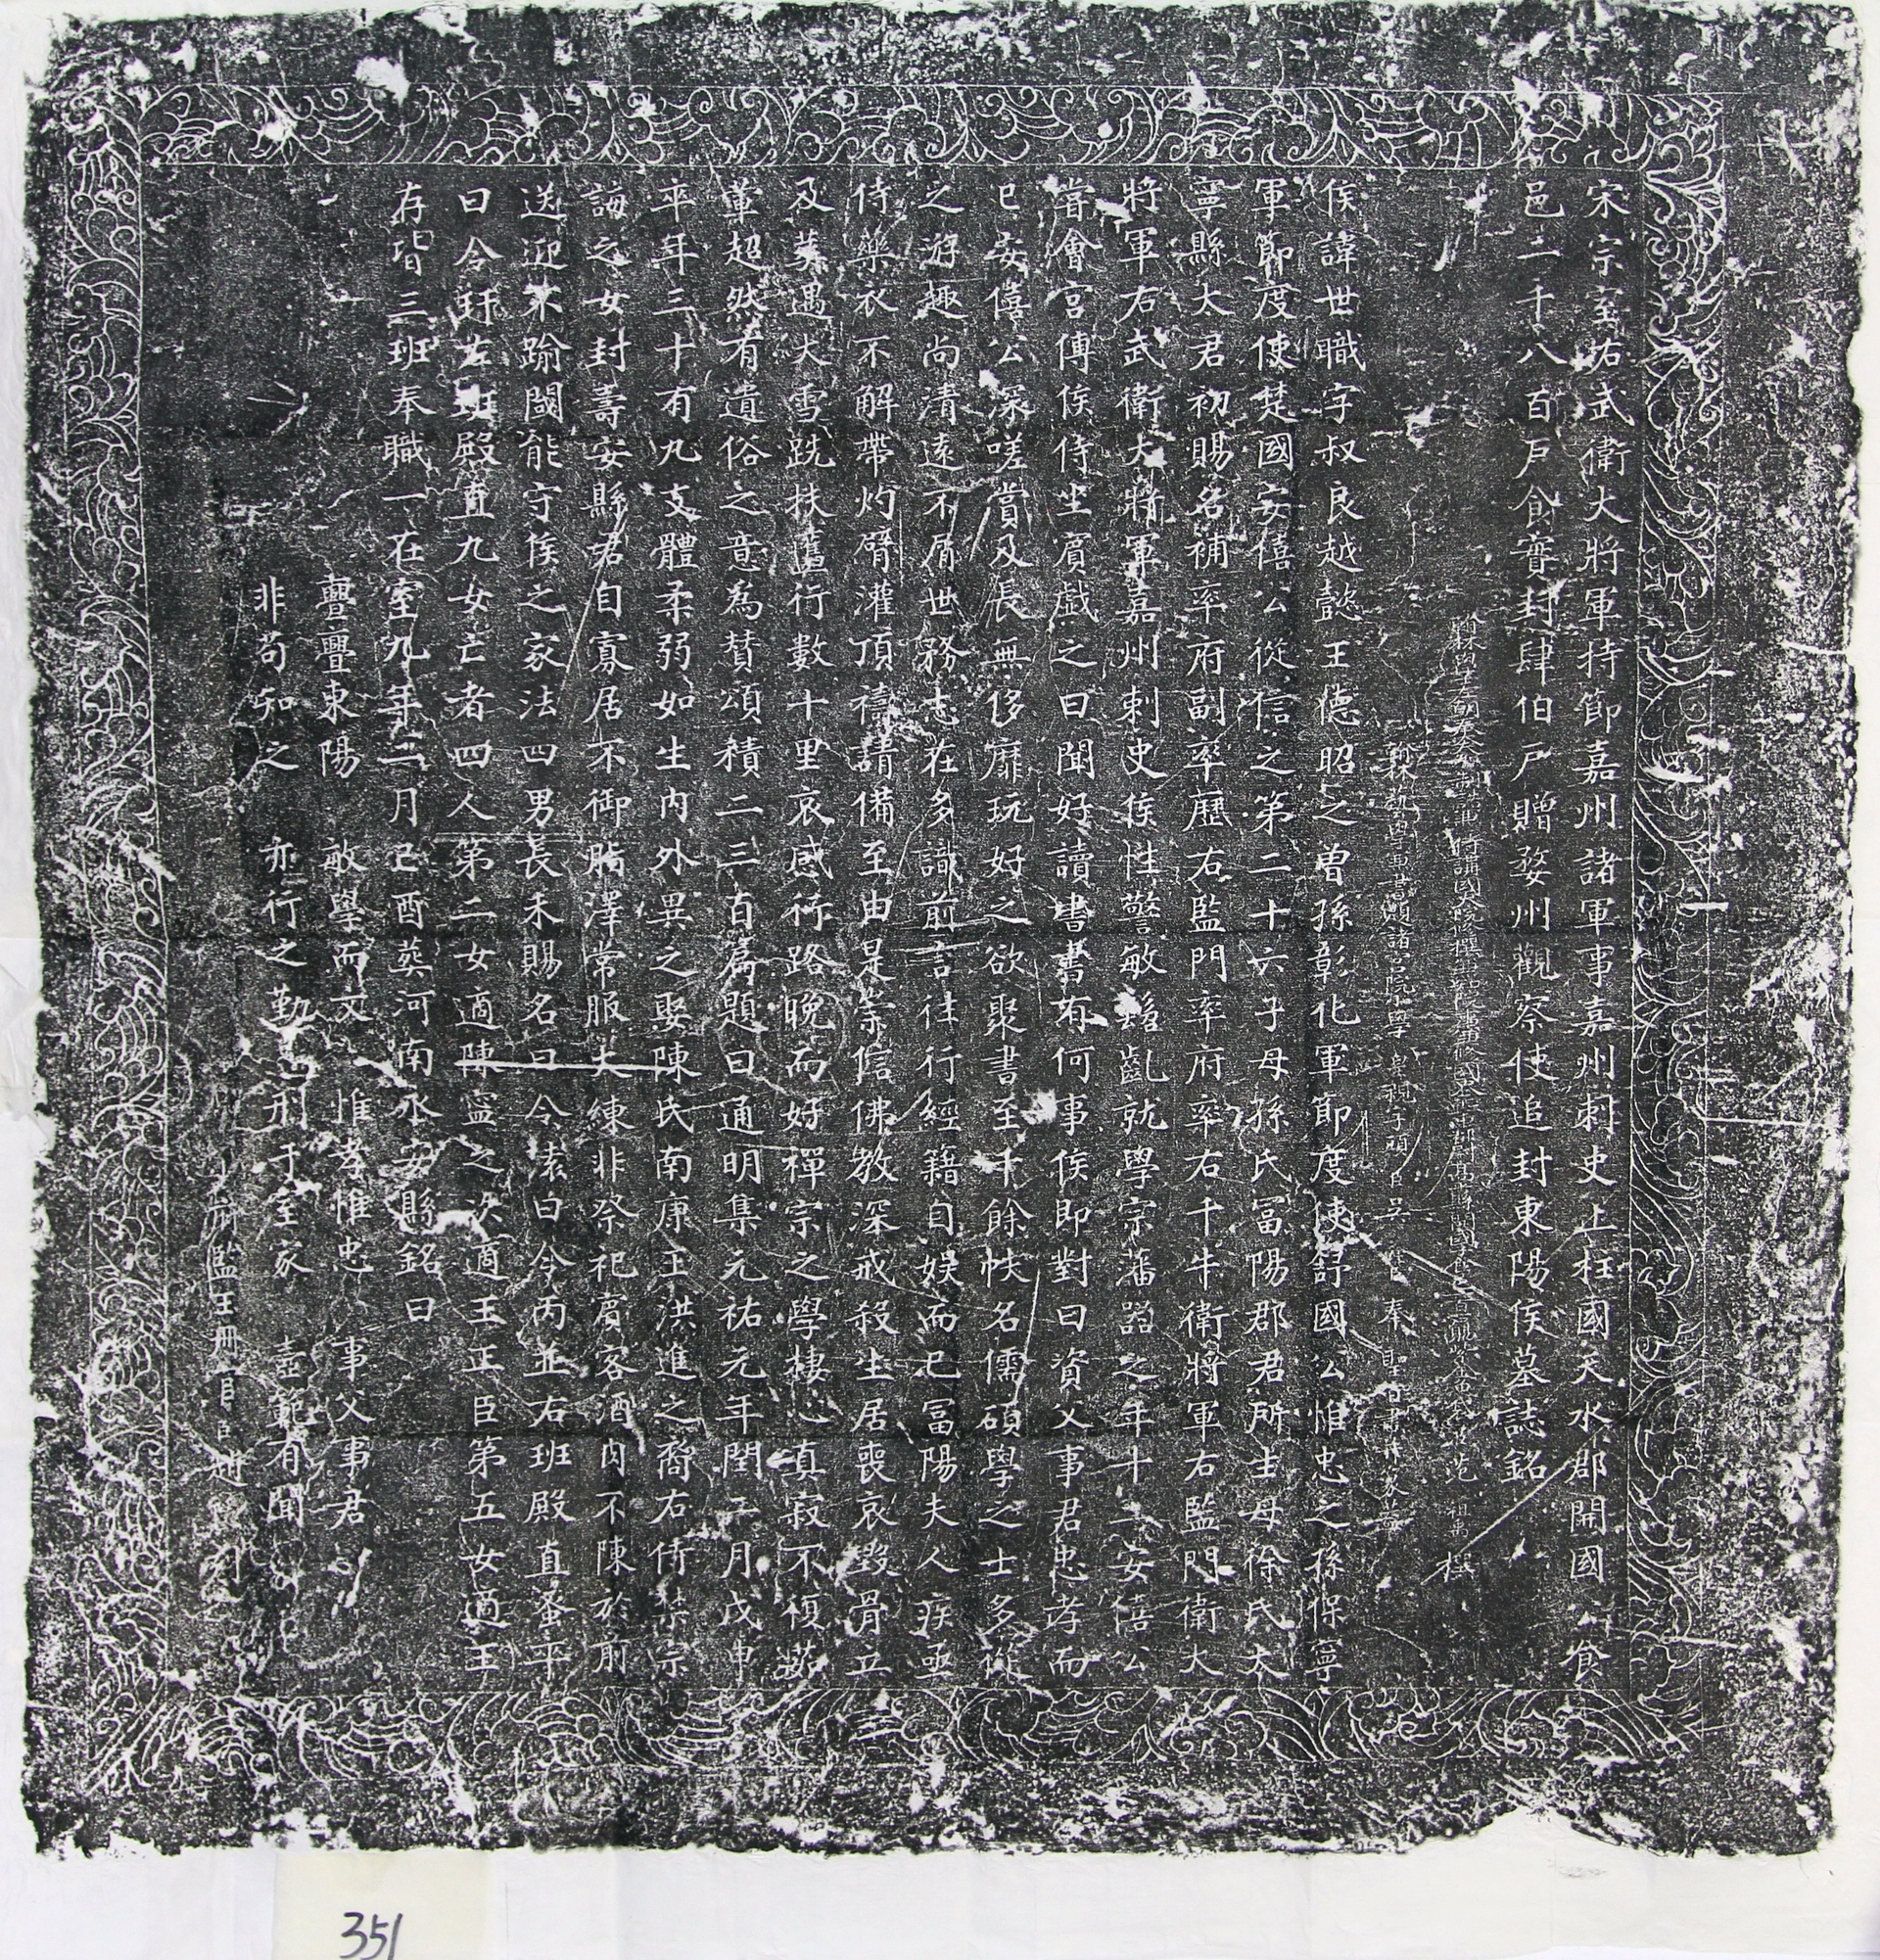 宋宗室右武衛大將軍持節嘉州諸軍事嘉州刺史上柱國天水郡開國 食
邑二千八百戶食實封肆伯戶贈婺州觀察使追封東陽侯墓誌銘
翰林學士朝奉大夫知制誥兼侍講國史修撰 范 祖禹 撰
翰林藝學 書 諸宮院學 奉 聖旨書
侯諱世職字叔良越懿王德昭之曾孫彰化軍節度使舒國公惟忠之孫保寧
軍節度使楚國安僖公從信之第二十六子母孫氏冨陽郡君所生母徐氏太
寧縣太君初賜名補率府副率歷右監門率府率右千牛衛將軍右監門衛大
將軍右武衛大將軍嘉州刺史侯性警敏髫齓就學宗藩器之年十二安僖公
嘗會宮傅侯侍坐賓戲之曰聞好讀書書有何事侯即對曰資父事君忠孝而
已安僖公深嗟賞及長無侈靡玩好之欲聚書至千餘帙名儒碩學之士多從
之游趣尚清遠不屑世務志在多識前言往行經籍自娛而已冨陽夫人疾亟
侍藥衣不解帶灼臂灌頂禱請備至由是崇信佛教深戒殺生居喪哀毀骨立
及葬遇大雪跣扶護行數十里哀感行路晚而好禪宗之學棲心真寂不復茹
葷超然有遺俗之意為贊頌積二三百篇題曰通明集元祐元年閏二月戊申
卒年三十有九支體柔弱如生內外異之娶陳氏南康王洪進之裔右侍禁宗
誨之女封壽安縣君自寡居不御脂澤常服大練非祭祀賓客酒肉不陳於前
送迎不踰閾能守侯之家法四男長未賜名曰令 曰令丙並右班殿直蚤卒
曰令 左班殿直九女亡者四人第二女適陳寔之次適王正臣第五女適王
存皆三班奉職一在室九年二月己酉葬河南永安縣銘曰
亹亹東陽 敏學而文 惟孝惟忠 事父事君
非苟知之 亦行之勤 刑于室家 壼範有聞
監玉冊官 刊
351